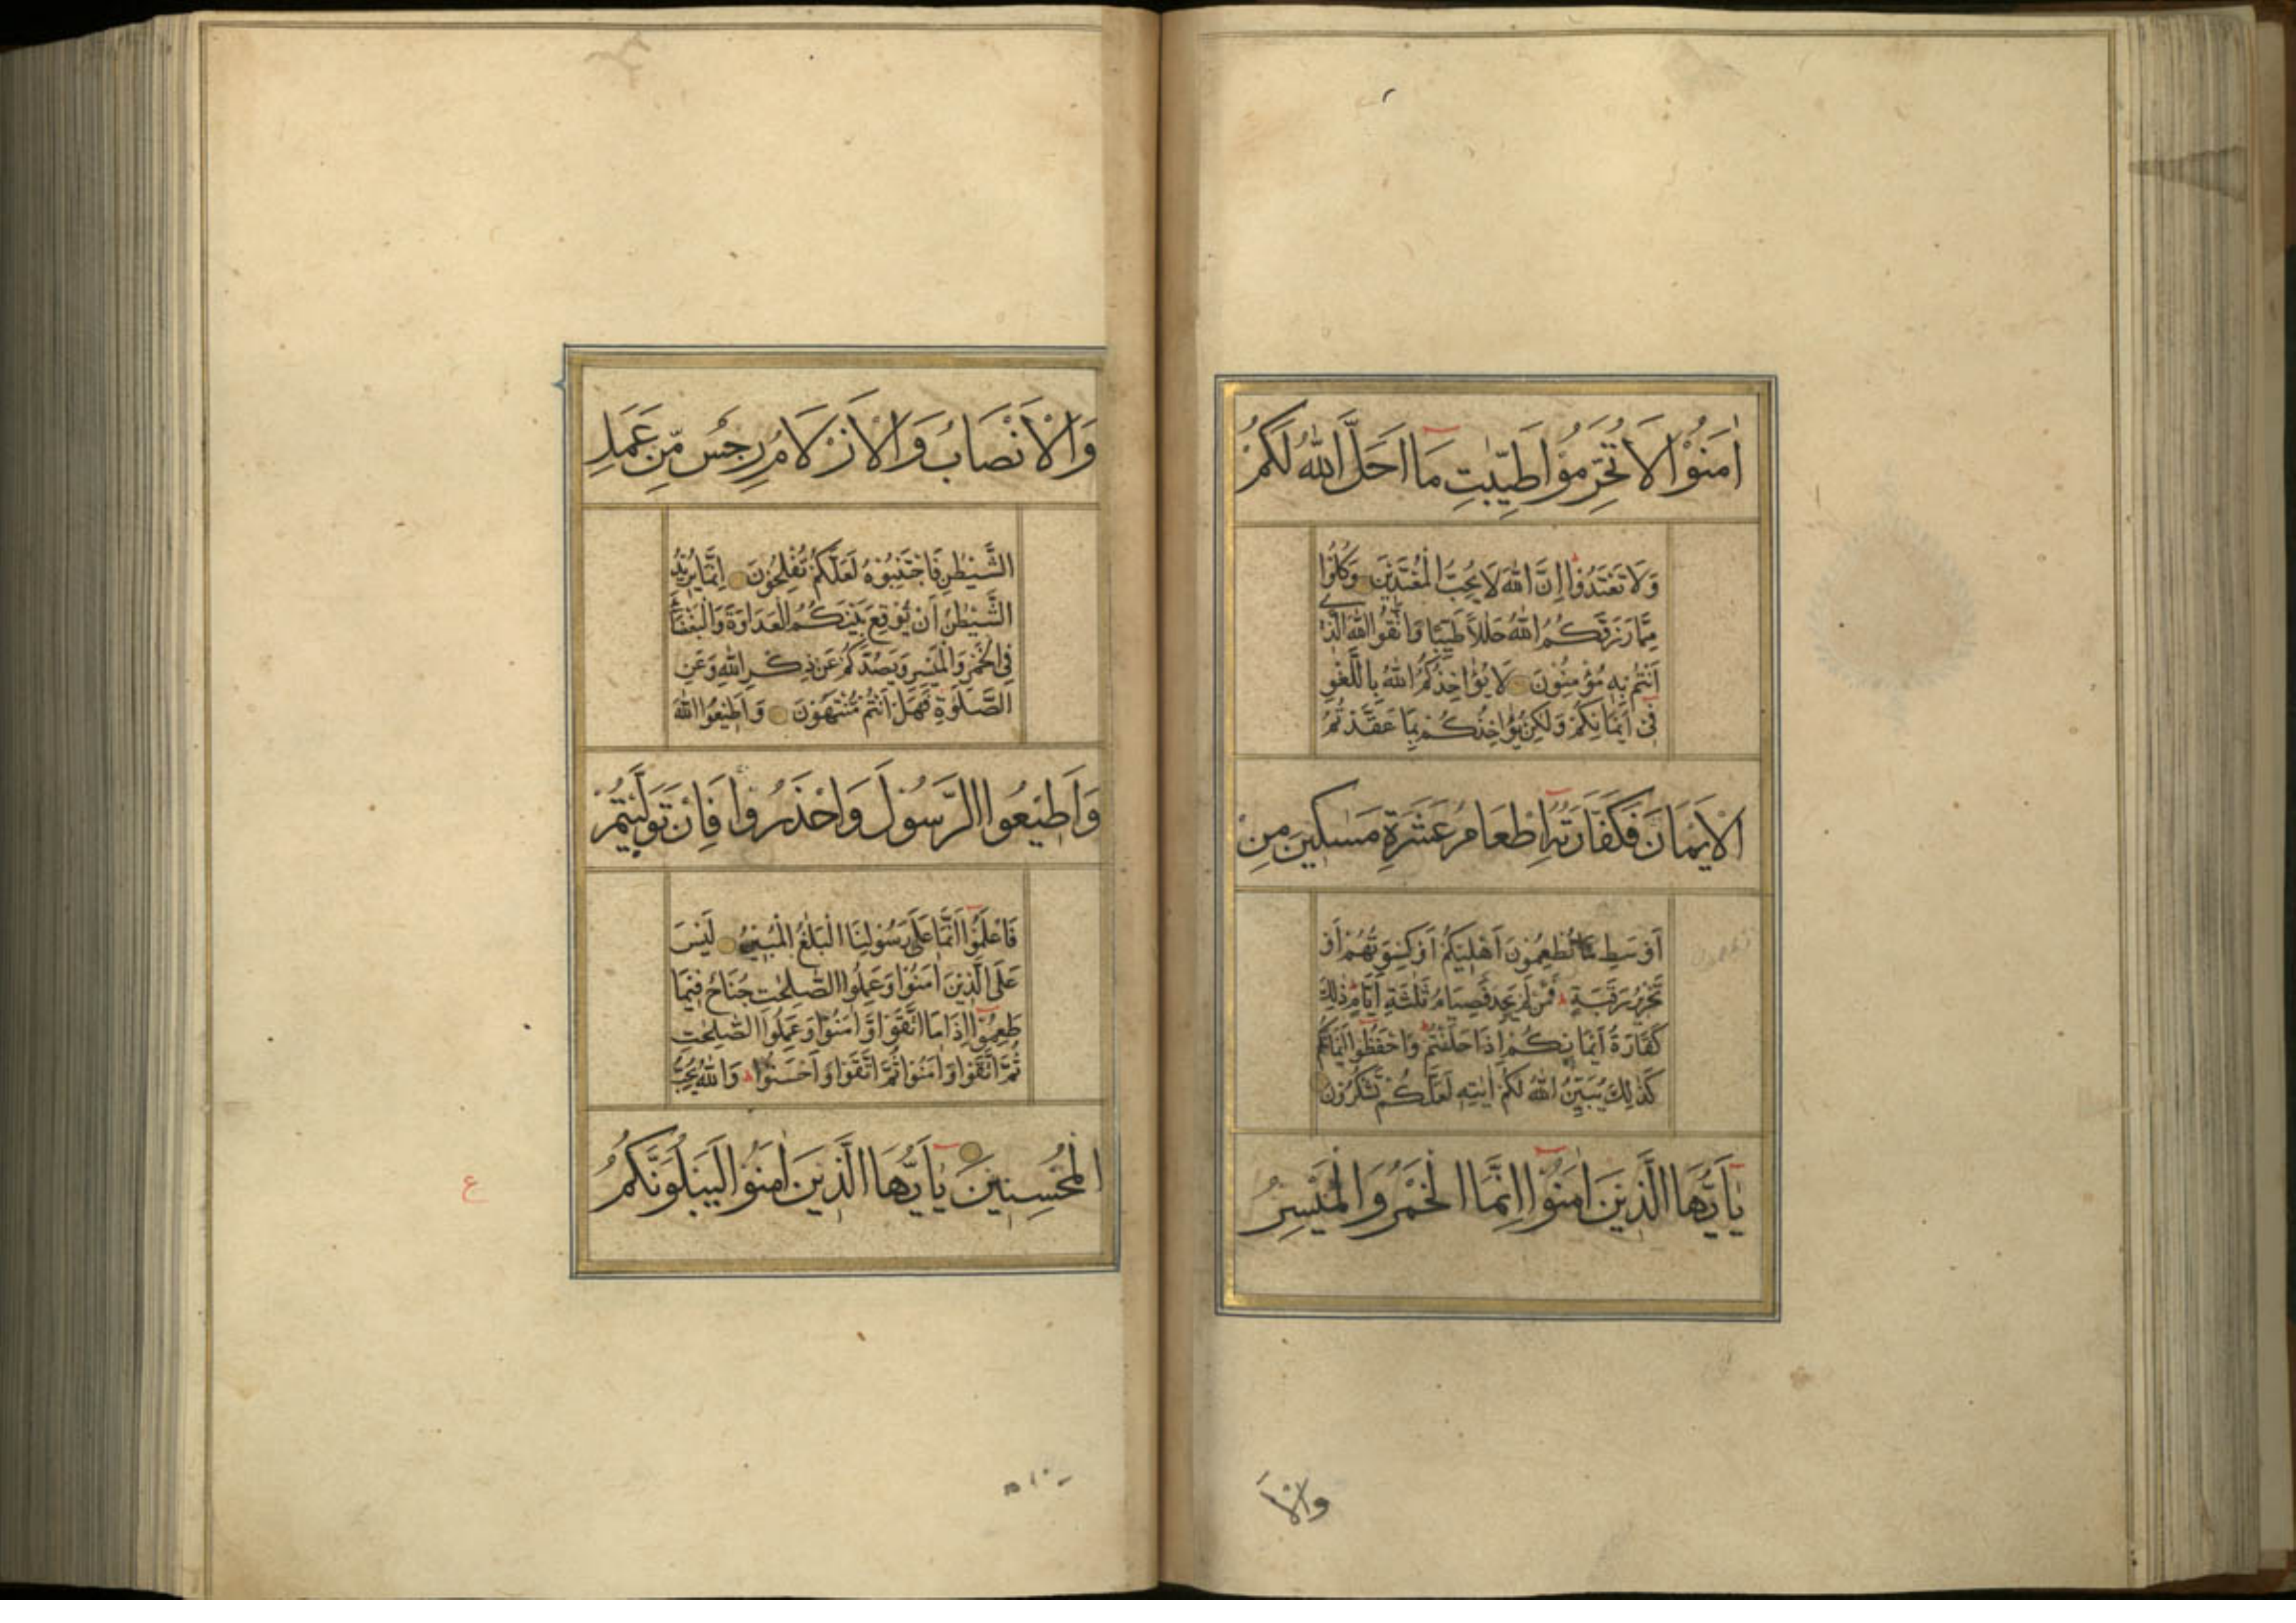 اٰمَنُوْا لَا تُحَرِّمُوْا طَيِّبٰتِ مَا اَحَلَّ اللّٰهُ لَكُمْ
وَلَا تَعْتَدُوْا اِنَّ اللّٰهَ لَا يُحِبُّ الْمُعْتَدِيْنَ وَكُلُوْا
مِمَّا رَزَقَكُمُ اللّٰهُ حَلٰلًا طَيِّبًا وَاتَّقُوا اللّٰهَ الَّذِيْ
اَنْتُمْ بِهٖ مُؤْمِنُوْنَ لَا يُؤَاخِذُكُمُ اللّٰهُ بِاللَّغْوِ
فِيْ اَيْمَانِكُمْ وَلٰكِنْ يُؤَاخِذُكُمْ بِمَا عَقَّدْتُمُ
الْاَيْمَانَ فَكَفَّارَتُهُ اِطْعَامُ عَشَرَةِ مَسٰكِيْنَ مِنْ
اَوْسَطِ مَا تُطْعِمُوْنَ اَهْلِيْكُمْ اَوْ كِسْوَتُهُمْ اَوْ
تَحْرِيْرُ رَقَبَةٍ فَمَنْ لَمْ يَجِدْ فَصِيَامُ ثَلٰثَةِ اَيَّامٍ ذٰلِكَ
كَفَّارَةُ اَيْمَانِكُمْ اِذَا حَلَفْتُمْ وَاحْفَظُوْا اَيْمَانَكُمْ
كَذٰلِكَ يُبَيِّنُ اللّٰهُ لَكُمْ اٰيٰتِهٖ لَعَلَّكُمْ تَشْكُرُوْنَ
يٰٓاَيُّهَا الَّذِيْنَ اٰمَنُوْا اِنَّمَا الْخَمْرُ وَالْمَيْسِرُ
والْاَ
وَالْاَنْصَابُ وَالْاَزْلَامُ رِجْسٌ مِّنْ عَمَلِ
الشَّيْطٰنِ فَاجْتَنِبُوْهُ لَعَلَّكُمْ تُفْلِحُوْنَ اِنَّمَا يُرِيْدُ
الشَّيْطٰنُ اَنْ يُّوْقِعَ بَيْنَكُمُ الْعَدَاوَةَ وَالْبَغْضَاءَ
فِي الْخَمْرِ وَالْمَيْسِرِ وَيَصُدَّكُمْ عَنْ ذِكْرِ اللّٰهِ وَعَنِ
الصَّلٰوةِ فَهَلْ اَنْتُمْ مُّنْتَهُوْنَ وَاَطِيْعُوا اللّٰهَ
وَاَطِيْعُوا الرَّسُوْلَ وَاحْذَرُوْا فَاِنْ تَوَلَّيْتُمْ
فَاعْلَمُوْا اَنَّمَا عَلٰى رَسُوْلِنَا الْبَلٰغُ الْمُبِيْنُ لَيْسَ
عَلَى الَّذِيْنَ اٰمَنُوْا وَعَمِلُوا الصّٰلِحٰتِ جُنَاحٌ فِيْمَا
طَعِمُوْا اِذَا مَا اتَّقَوْا وَّاٰمَنُوْا وَعَمِلُوا الصّٰلِحٰتِ
ثُمَّ اتَّقَوْا وَاٰمَنُوْا ثُمَّ اتَّقَوْا وَاَحْسَنُوْا وَاللّٰهُ يُحِبُّ
الْمُحْسِنِيْنَ يٰٓاَيُّهَا الَّذِيْنَ اٰمَنُوْا لَيَبْلُوَنَّكُمُ
ع